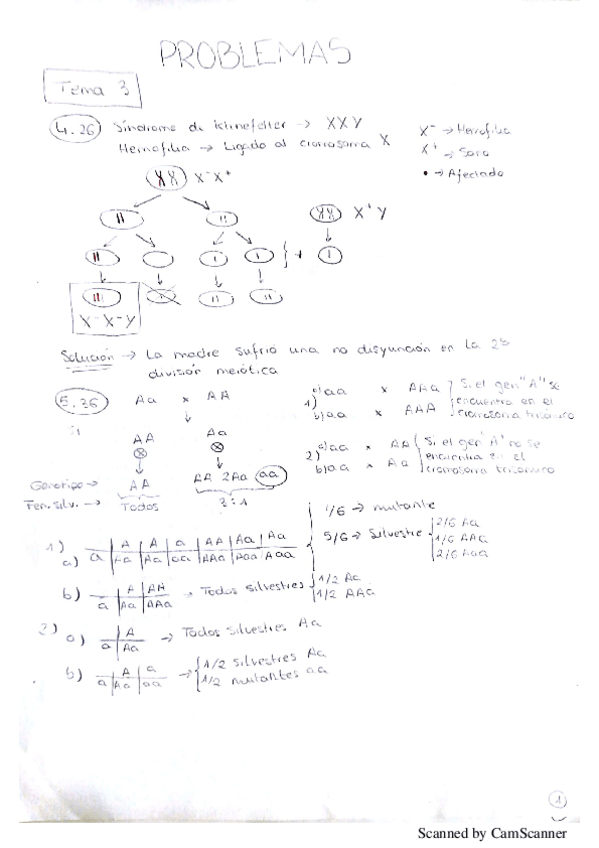 PROBLEMAS
Tema 3
4.26 Síndrome de klinefelter → XXY
Hemofilia → Ligado al cromosoma X
X⁻ → Hemofilia
X⁺ → Sano
• → Afectado
XX X⁻X⁺
XX X⁺Y
X⁻X⁻Y
Solución → La madre sufrió una no disyunción en la 2ª
división meiótica
5.36 Aa x AA
AA Aa
Genotipo → AA AA 2Aa aa
Fen. silv. → Todos 3:1
1) a) aa x AAa
b) aa x AAA
Si el gen "A" se
encuentra en el
cromosoma trisómico
2) a) aa x AA
b) aa x Aa
Si el gen "A" no se
encuentra en el
cromosoma trisómico
1)
a) A A a AA Aa Aa
a Aa Aa aa AAa Aaa Aaa
1/6 → mutante
5/6 → Silvestre
2/6 Aa
1/6 AAa
2/6 Aaa
b) A AA
a Aa AAa
→ Todos silvestres 1/2 Aa
1/2 AAa
2) a) A
a Aa
→ Todos silvestres Aa
b) A a
a Aa aa
→ 1/2 silvestres Aa
1/2 mutantes aa
1
Scanned by CamScanner